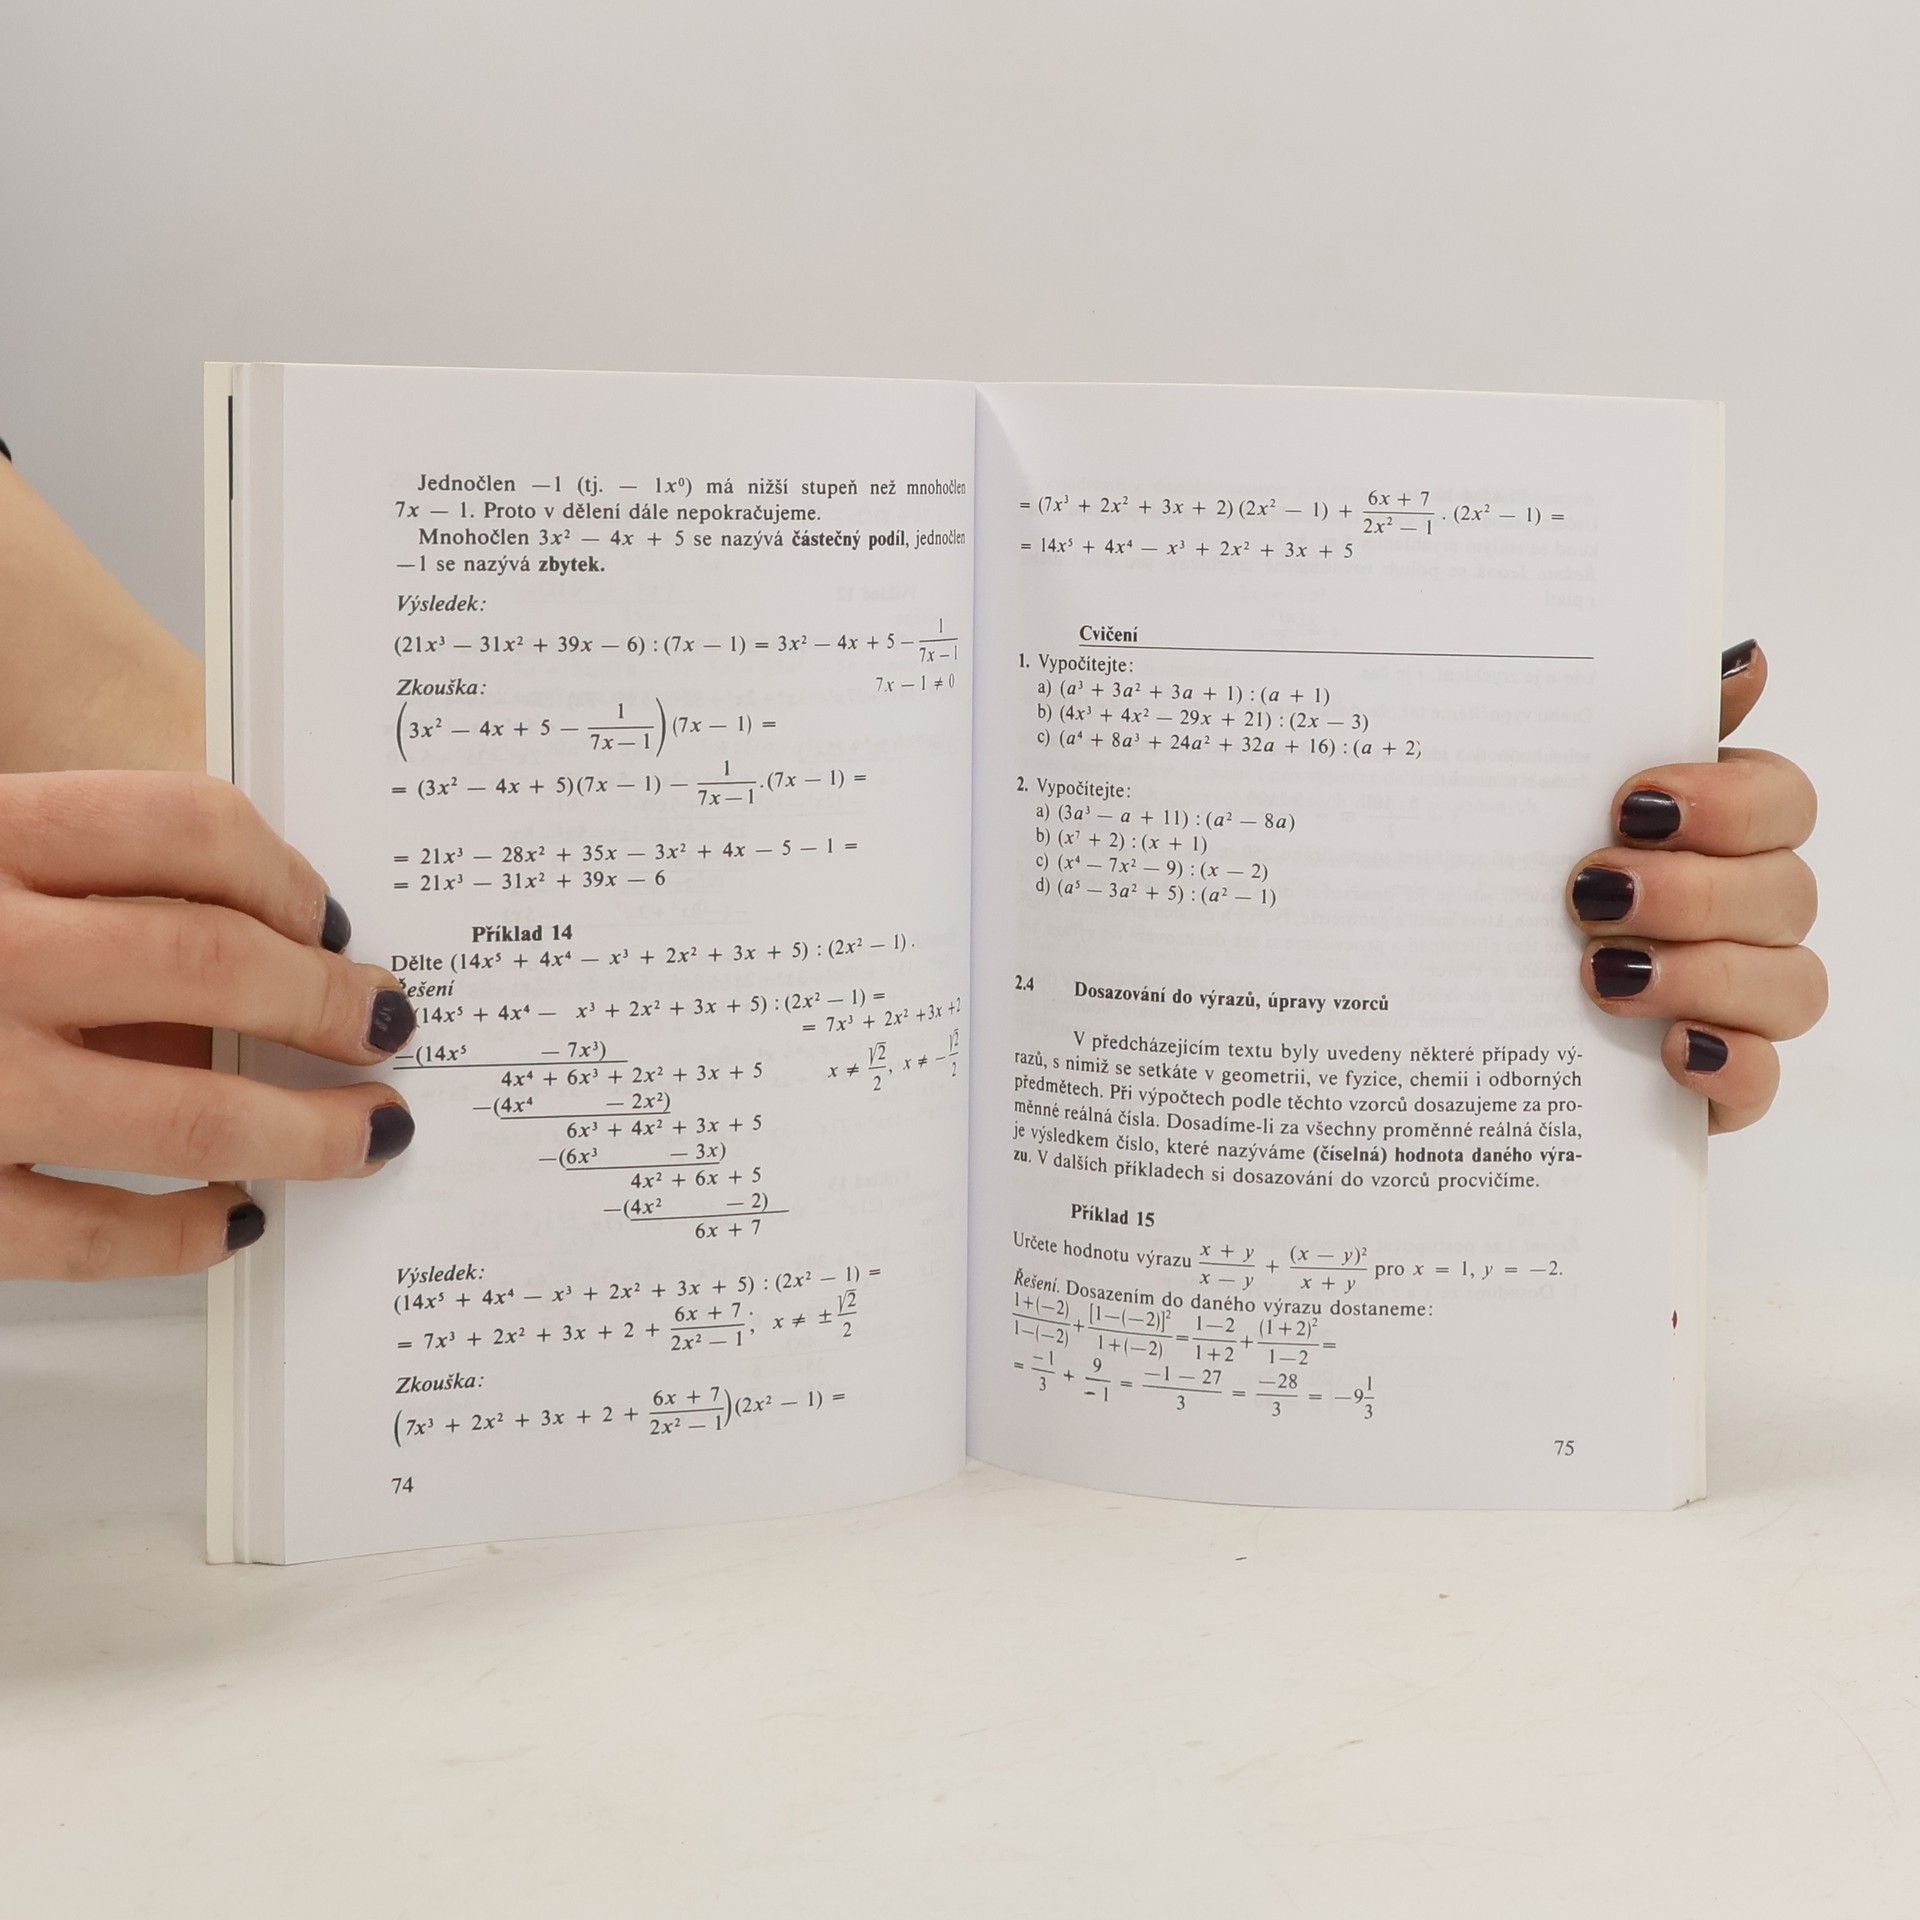 Jednočlen —1 (tj. — 1x⁰) má nižší stupeň než mnohočlen
7x — 1. Proto v dělení dále nepokračujeme.
Mnohočlen 3x² — 4x + 5 se nazývá částečný podíl, jednočlen
—1 se nazývá zbytek.
Výsledek:
(21x³ — 31x² + 39x — 6) : (7x — 1) = 3x² — 4x + 5 — 1/(7x—1)
Zkouška: 7x — 1 ≠ 0
(3x² — 4x + 5 — 1/(7x—1)) (7x — 1) =
= (3x² — 4x + 5)(7x — 1) — 1/(7x—1) .(7x — 1) =
= 21x³ — 28x² + 35x — 3x² + 4x — 5 — 1 =
= 21x³ — 31x² + 39x — 6
Příklad 14
Dělte (14x⁵ + 4x⁴ — x³ + 2x² + 3x + 5) : (2x² — 1).
ešení
(14x⁵ + 4x⁴ — x³ + 2x² + 3x + 5) : (2x² — 1) =
= 7x³ + 2x² +3x +2
—(14x⁵ — 7x³)
4x⁴ + 6x³ + 2x² + 3x + 5 x ≠ √2/2, x ≠ —√2/2
—(4x⁴ — 2x²)
6x³ + 4x² + 3x + 5
—(6x³ — 3x)
4x² + 6x + 5
—(4x² — 2)
6x + 7
Výsledek:
(14x⁵ + 4x⁴ — x³ + 2x² + 3x + 5) : (2x² — 1) =
= 7x³ + 2x² + 3x + 2 + (6x + 7)/(2x² — 1); x ≠ ±√2/2
Zkouška:
(7x³ + 2x² + 3x + 2 + (6x + 7)/(2x² — 1))(2x² — 1) =
74
= (7x³ + 2x² + 3x + 2)(2x² — 1) + (6x + 7)/(2x² — 1) . (2x² — 1) =
= 14x⁵ + 4x⁴ — x³ + 2x² + 3x + 5
Cvičení
1. Vypočítejte:
a) (a³ + 3a² + 3a + 1) : (a + 1)
b) (4x³ + 4x² — 29x + 21) : (2x — 3)
c) (a⁴ + 8a³ + 24a² + 32a + 16) : (a + 2)
2. Vypočítejte:
a) (3a³ — a + 11) : (a² — 8a)
b) (x⁷ + 2) : (x + 1)
c) (x⁴ — 7x² — 9) : (x — 2)
d) (a⁵ — 3a² + 5) : (a² — 1)
2.4 Dosazování do výrazů, úpravy vzorců
V předcházejícím textu byly uvedeny některé případy vý-
razů, s nimiž se setkáte v geometrii, ve fyzice, chemii i odborných
předmětech. Při výpočtech podle těchto vzorců dosazujeme za pro-
měnné reálná čísla. Dosadíme-li za všechny proměnné reálná čísla,
je výsledkem číslo, které nazýváme (číselná) hodnota daného výra-
zu. V dalších příkladech si dosazování do vzorců procvičíme.
Příklad 15
Určete hodnotu výrazu (x + y)/(x — y) + (x — y)²/(x + y) pro x = 1, y = —2.
Řešení. Dosazením do daného výrazu dostaneme:
(1+(—2))/(1—(—2)) + [1—(—2)]²/(1+(—2)) = (1—2)/(1+2) + (1+2)²/(1—2) =
= —1/3 + 9/—1 = (—1 — 27)/3 = —28/3 = —9 1/3
75